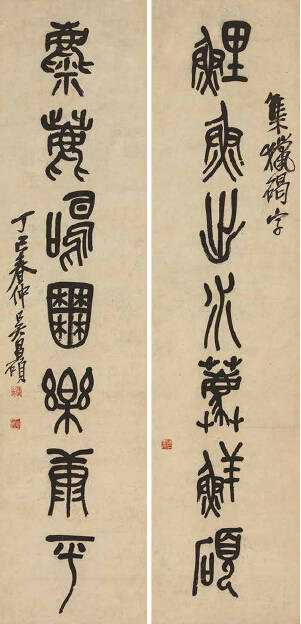 鯉魚出水鮮碩
集獵碣字
麋鹿鳴囿樂康平
丁巳春仲吳昌碩